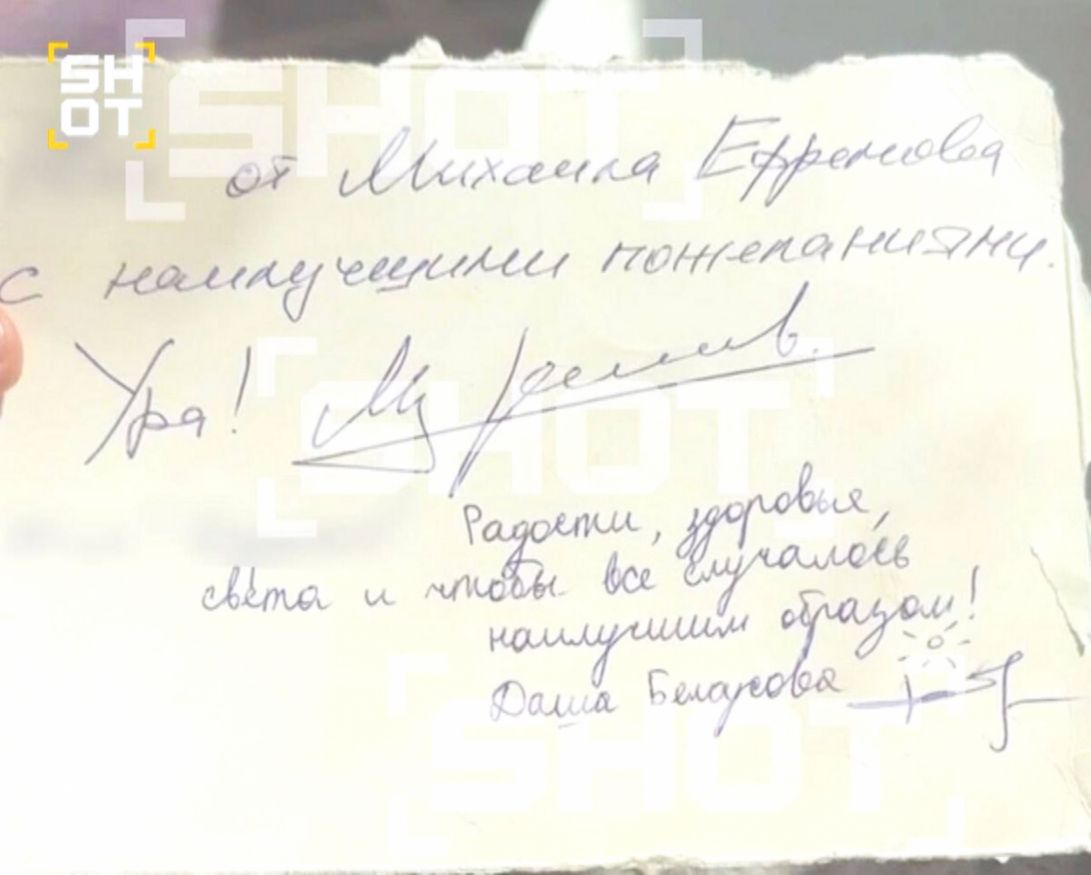 SH
OT
SHOT
от Михаила Ефремова
с наилучшими пожеланиями.
SHOT
Ура!
Радости, здоровья,
света и чтобы все случалось
наилучшим образом!
Даша Белоусова
SHOT